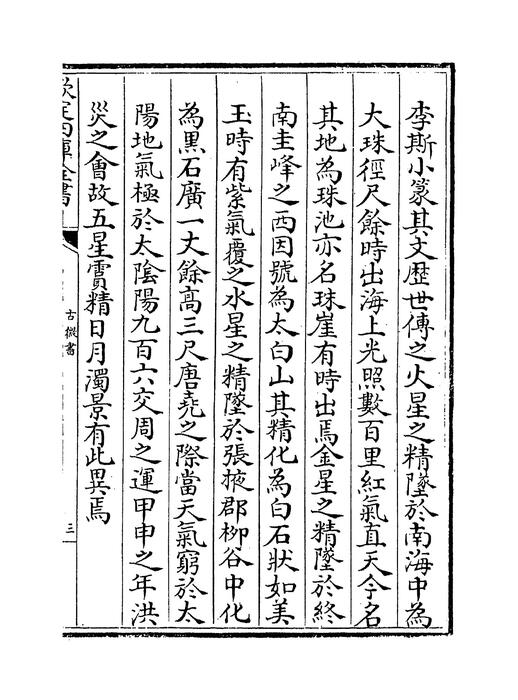 李斯小篆其文歴世傳之火星之精墜於南海中為
大珠徑尺餘時出海上光照數百里紅氣直天今名
其地為珠池亦名珠崖有時出焉金星之精墜於終
南圭峰之西因號為太白山其精化為白石狀如美
玉時有紫氣覆之水星之精墜於張掖郡栁谷中化
為黒石廣一丈餘高三尺唐堯之際當天氣窮於太
陽地氣極於太陰陽九百六交周之運甲申之年洪
災之會故五星霣精日月濁景有此異焉
欽定四庫全書
古微書
三